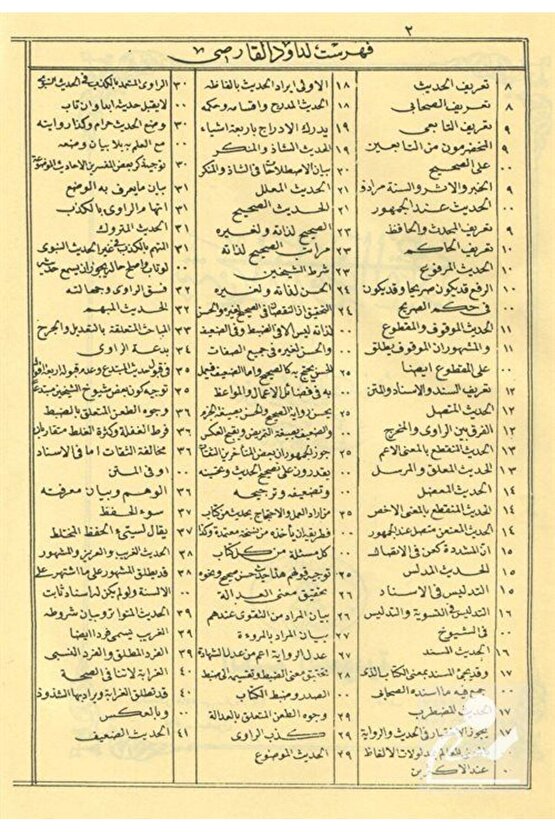 ٢
فهرست لداود القارصى
٨ تعريف الحديث
٨ تعريف الصحابى
٩ تعريف التابعى
٩ المخضرمون من التابعين
٠٠ على الصحيح
٩ الخبر والاثر والسنة مرادة
٠٠ الحديث عند الجمهور
٩ تعريف المحدث والحافظ
١٠ تعريف الحاكم
١٠ الحديث المرفوع
١٠ الرفع قد يكون صريحا وقد يكون
٠٠ فى حكم الصريح
١١ الحديث الموقوف والمقطوع
١١ والمشهور ان الموقوف يطلق
٠٠ على المقطوع ايضا
١٢ تعريف السند والاسناد والمتن
١٢ الحديث المتصل
١٢ الفرق بين الراوى والمخرج
١٣ الحديث المنقطع بالمعنى الاعم
١٣ الحديث المعلق والمرسل
١٤ الحديث المعضل
١٤ الحديث المنقطع بالمعنى الاخص
١٤ الحديث المعنعن متصل عند الجمهور
١٥ انّ المشددة كعن فى الاتصال
١٥ الحديث المدلس
١٥ التدليس فى الاسناد
١٦ التدليس فى التسوية والتدليس
٠٠ فى الشيوخ
١٦ الحديث المسند
١٧ وقد يجئ المسند بمعنى الكتاب الذى
٠٠ جمع فيه ما اسنده الصحابة
١٧ الحديث المضطرب
١٧ يجوز الاختصار فى الحديث والرواية
بالمعنى للعالم بمدلولات الالفاظ
٠ عند الاكثرين
١٨ الاولى ايراد الحديث بالفاظه
١٨ الحديث المدرج واقسامه وحكمه
١٩ يدرك الادراج باربعة اشياء
١٩ الحديث الشاذ والمنكر
٢٠ بيان الاصطلاحات فى الشاذ والمنكر
٢١ الحديث المعلل
٢١ الحديث الصحيح
٢٢ الصحيح لذاته ولغيره
٢٣ مراتب الصحيح لذاته
٢٣ شرط الشيخين
٢٤ الحسن لذاته ولغيره
٢٤ التحقيق ان النقصان فى الصحيح لغيره والحسن
٠٠ لذاته ليس الا فى الضبط وفى الضعيف
٠٠ والحسن لغيره فى جميع الصفات
الحسن يحتج به كالصحيح واما الضعيف فيعمل
٠٠ به فى فضائل الاعمال والمواعظ
يحسن رواية الصحيح والحسن بصيغة الجزم
٠٠ والضعيف بصيغة التمريض ويقبح العكس
٢٥ جوز الجمهور ان بعض المتأخرين الثقات
٠٠ يقتدرون على تصحيح الحديث وتحسينه
٠٠ وتضعيفه وترجيحه
٣٥ من اراد العمل والاحتجاج بحديث من كتاب
٠٠ فطريقه ان يأخذه من نسخة معتمدة وكذا
٠٠ كل مسئلة من كل كتاب
٢٥ توجيه قولهم هذا حديث حسن صحيح ونحوه
٢٦ تحقيق معنى العدالة
٢٦ بيان المراد من التقوى عندهم
٢٧ بيان المراد بالمروءة
٢٧ عدل الرواية اعم من عدل الشهادة
٢٨ تحقيق معنى الضبط وتقسيمه الى ضبط
٠٠ الصدر وضبط الكتاب
٢٩ وجوه الطعن المتعلق بالعدالة
٢٩ كذب الراوى
٢٩ الحديث الموضوع
٣٠ الراوى المتعمد بالكذب فى الحديث النبوى
٠٠ لا يقبل حديثه ابدا وان تاب
٣٠ وضع الحديث حرام وكذا روايته
٠٠ مع العلم به بلا بيان وضعه
٣٠ توجيه ذكر بعض المفسرين الاحاديث الموضوعة
٣١ بيان ما يعرف به الوضع
٣١ اتهام الراوى بالكذب
٣١ الحديث المتروك
٣١ المتهم بالكذب فى غير الحديث النبوى
٠٠ لو تاب واصلح حاله يجوز ان يسمع حديثه
٣٢ فسق الراوى وجهالته
٣٢ الحديث المبهم
٣٣ المباحث المتعلقة بالتعديل والجرح
٣٤ بدعة الراوى
٣٥ فى قبول حديث المبتدع وعدم قبوله اربعة اقوال
٣٥ توجيه كون بعض شيوخ الشيخين مبتدعا
٣٦ وجوه الطعن المتعلق بالضبط
٣٦ فرط الغفلة وكثرة الغلط متقاربان
٣٦ مخالفة الثقات اما فى الاسناد
٠٠ او فى المتن
٣٦ الوهم وبيان معرفته
٣٧ سوء الحفظ
٣٧ يقال لسيئ الحفظ المختلط
٣٨ الحديث الغريب والعزيز والمشهور
٣٨ قد يطلق المشهور على ما اشتهر على
٠٠ الالسنة ولو لم يكن له اسناد ثابت
٣٩ الحديث المتواتر وبيان شروطه
٣٩ الغريب يسمى فردا ايضا
٣٩ الفرد المطلق والفرد النسبى
٤٠ الغرابة لا تنافى الصحة
٤٠ قد تطلق الغرابة ويراد بها الشذوذ
٠٠ وبالعكس
٤١ الحديث الضعيف